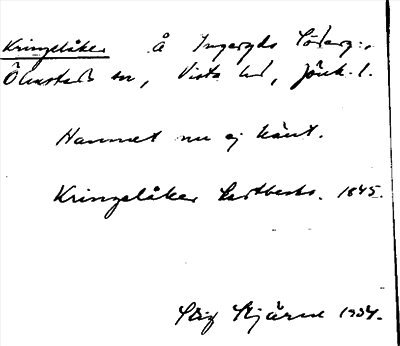 Kringelåker Å Ingeryds Söderg:,
Ölmstads sn, Vista hd, Jönk. l.
Namnet nu ej känt.
Kringelåker Lantbesks. 1845.
Stig Stjärne 1934.